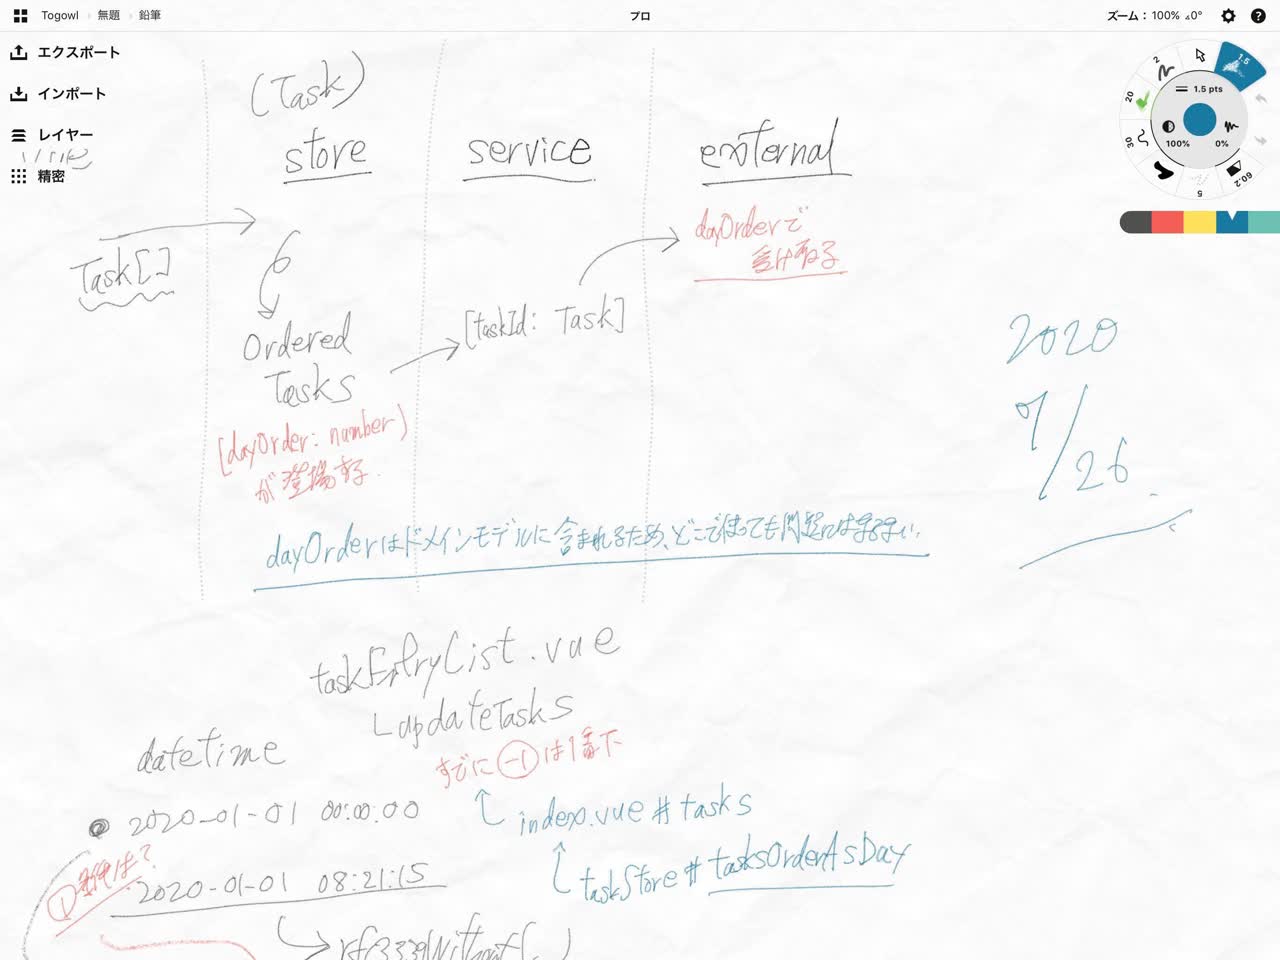 Togowl 無題 鉛筆
プロ
ズーム：100% ⊿0°
エクスポート
インポート
レイヤー
精密
2
1.5
20
30
5
60.2
1.5 pts
100%
0%
(Task)
store
service
external
dayOrderで
受け取る
Task[]
Ordered
Tasks
[taskId: Task]
[dayOrder: number)
が登場する
2020
7/26
dayOrderはドメインモデルに含まれるため、どこで使っても問題にはならない.
taskEntryList.vue
updateTasks
すでに -1 は1番下
index.vue # tasks
taskStore # tasksOrderAsDay
datetime
2020-01-01 00:00:00
① は?
2020-01-01 08:21:15
rfc3339Without( )